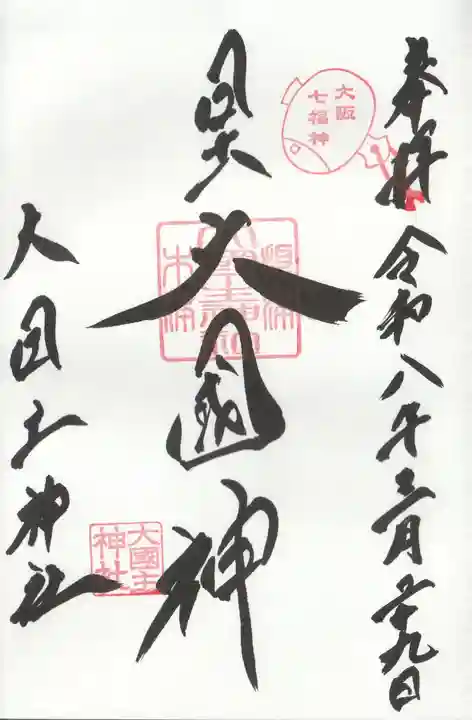 奉拝 令和八年三月二十九日
大阪
七福神
日出大國神
大国主神社
大國主
神社